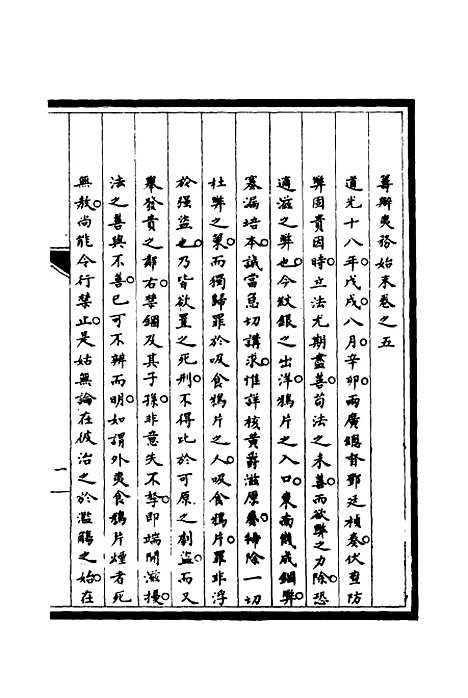 籌辦夷務始末卷之五
道光十八年戊戌八月辛卯兩廣總督鄧廷楨奏伏查防
弊固貴因時立法尤期盡善苟法之未善而欲弊之力除恐
適滋之弊也今紋銀之出洋鴉片之入口東南幾成錮弊
塞漏培本誠當急切講求惟詳核黃爵滋原奏掃除一切
杜弊之策而獨歸罪於吸食鴉片之人吸食鴉片罪非浮
於强盜也乃皆欲置之死刑不得比於可原之刦盜而又
舉發責之鄰右禁錮及其子孫非意失不孥即端開滋擾
法之善與不善已可不辨而明如謂外夷食鴉片煙者死
無赦尚能令行禁止是姑無論在彼治之於濫觴之始在
一